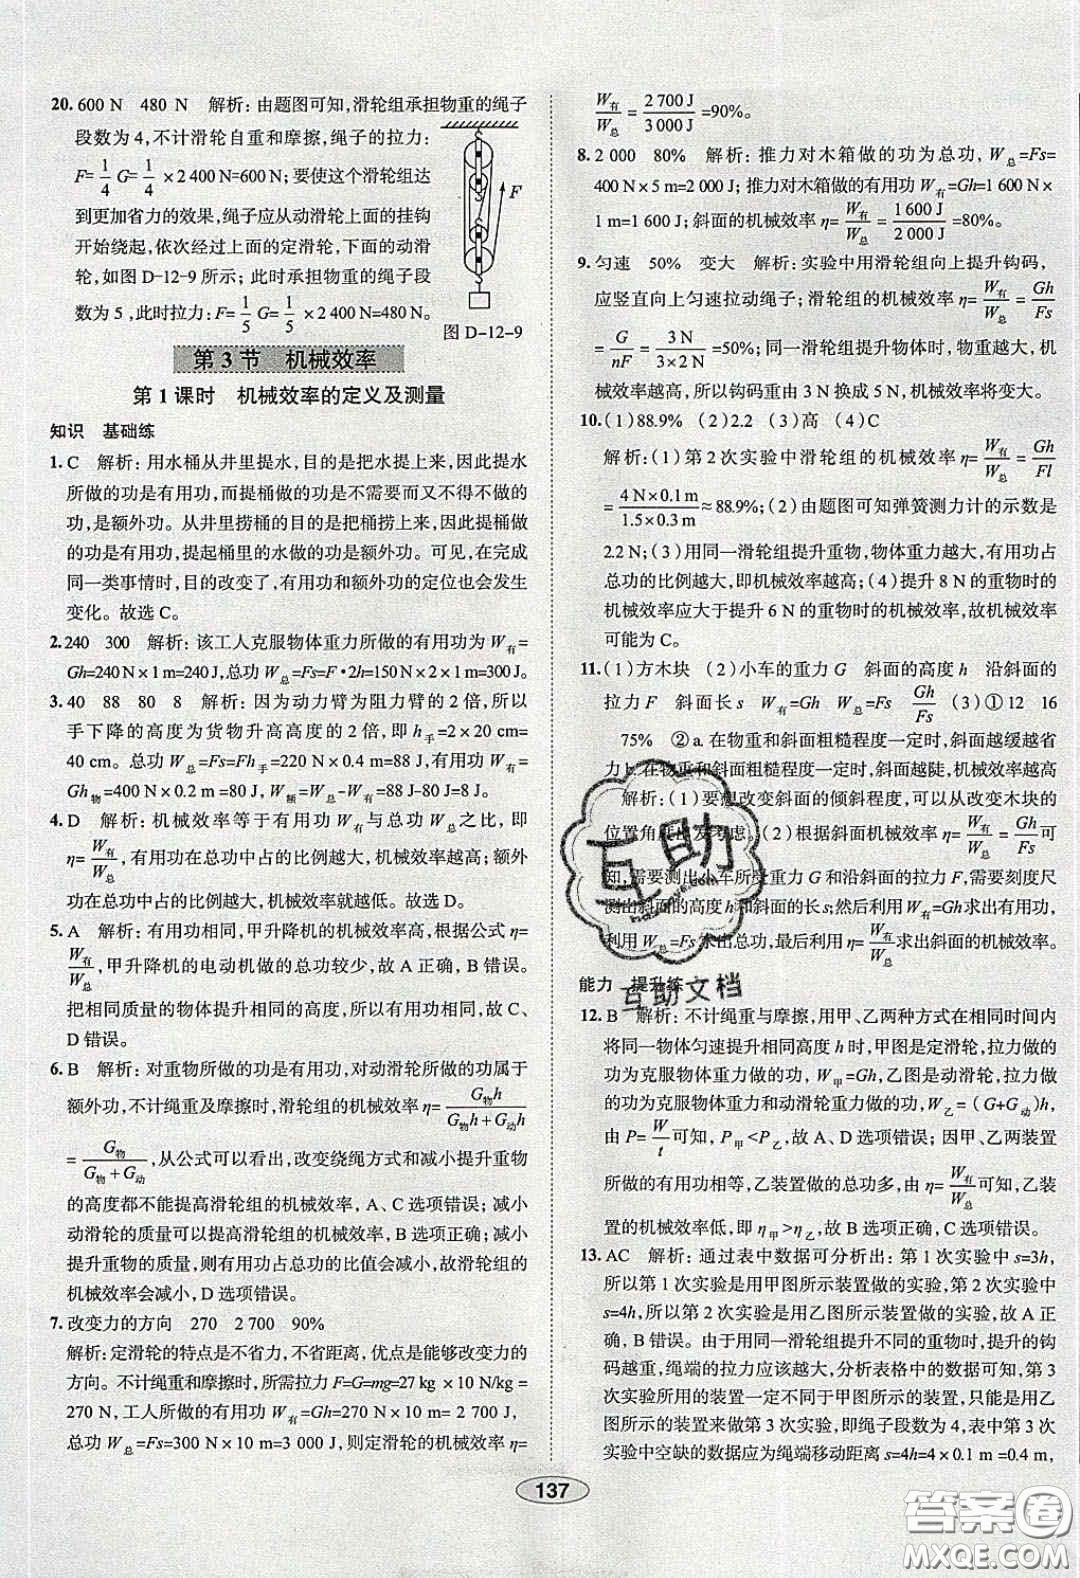 20. 600 N　480 N　解析：由题图可知，滑轮组承担物重的绳子
段数为 4，不计滑轮自重和摩擦，绳子的拉力：
F=1/4 G=1/4×2 400 N=600 N；要使这个滑轮组达
到更加省力的效果，绳子应从动滑轮上面的挂钩
开始绕起，依次经过上面的定滑轮，下面的动滑
轮，如图 D-12-9 所示；此时承担物重的绳子段
数为 5，此时拉力：F=1/5 G=1/5×2 400 N=480 N。
F
图 D-12-9
第 3 节　机械效率
第 1 课时　机械效率的定义及测量
知识　基础练
1. C　解析：用水桶从井里提水，目的是把水提上来，因此提水
所做的功是有用功，而提桶做的功是不需要而又不得不做的
功，是额外功。从井里捞桶的目的是把桶捞上来，因此提桶做
的功是有用功，提起桶里的水做的功是额外功。可见，在完成
同一类事情时，目的改变了，有用功和额外功的定位也会发生
变化。故选 C。
2. 240　300　解析：该工人克服物体重力所做的有用功为 W有=
Gh=240 N×1 m=240 J，总功 W总=Fs=F·2h=150 N×2×1 m=300 J。
3. 40　88　80　8　解析：因为动力臂为阻力臂的 2 倍，所以
手下降的高度为货物升高高度的 2 倍，即 h手=2×20 cm=
40 cm。总功 W总=Fs=Fh手=220 N×0.4 m=88 J，有用功 W有=
Gh物=400 N×0.2 m=80 J，W额=W总-W有=88 J-80 J=8 J。
4. D　解析：机械效率等于有用功 W有与总功 W总之比，即
η=W有/W总，有用功在总功中占的比例越大，机械效率越高；额外
功在总功中占的比例越大，机械效率就越低。故选 D。
5. A　解析：有用功相同，甲升降机的机械效率高，根据公式 η=
W有/W总，甲升降机的电动机做的总功较少，故 A 正确，B 错误。
把相同质量的物体提升到相同的高度，有用功相同，故 C、
D 错误。
6. B　解析：对重物所做的功是有用功，对动滑轮所做的功属于
额外功，不计绳重及摩擦时，滑轮组的机械效率 η=G物h/(G物h+G动h)
=G物/(G物+G动)，从公式可以看出，改变绕绳方式和减小提升重物
的高度都不能提高滑轮组的机械效率，A、C 选项错误；减小
动滑轮的质量可以提高滑轮组的机械效率，B 选项正确；减小
提升重物的质量，则有用功占总功的比值减小，滑轮组的
机械效率会减小，D 选项错误。
7. 改变力的方向　270　2 700　90%
解析：定滑轮的特点是不省力，不省距离，优点是能够改变力的
方向。不计绳重和摩擦时，所需拉力 F=G=mg=27 kg×10 N/kg=
270 N，工人所做的有用功 W有=Gh=270 N×10 m=2 700 J，
总功 W总=Fs=300 N×10 m=3 000 J，则定滑轮的机械效率 η=
W有/W总=2 700 J/3 000 J=90%。
8. 2 000　80%　解析：推力对木箱做的功为总功，W总=Fs=
400 N×5 m=2 000 J；推力对木箱做的有用功 W有=Gh=1 600 N×
1 m=1 600 J；斜面的机械效率 η=W有/W总=1 600 J/2 000 J=80%。
9. 匀速　50%　变大　解析：实验中用滑轮组向上提升钩码，
应竖直向上匀速拉动绳子；滑轮组的机械效率 η=W有/W总=Gh/Fs
=G/nF=3 N/(3×2 N)=50%；同一滑轮组提升物体时，物重越大，机
械效率越高，所以钩码重由 3 N 换成 5 N，机械效率将变大。
10. (1)88.9%　(2)2.2　(3)高　(4)C
解析：(1)第 2 次实验中滑轮组的机械效率 η=W有/W总=Gh/Fl
=4 N×0.1 m/(1.5×0.3 m)≈88.9%；(2)由题图可知弹簧测力计的示数是
2.2 N；(3)用同一滑轮组提升重物，物体重力越大，有用功占
总功的比例越大，即机械效率越高；(4)提升 8 N 的重物时的
机械效率应大于提升 6 N 的重物时的机械效率，故机械效率
可能为 C。
11. (1)方木块　(2)小车的重力 G　斜面的高度 h　沿斜面的
拉力 F　斜面长 s　W有=Gh　W总=Fs　Gh/Fs　(3)①12　16
75%　②a. 在物重和斜面粗糙程度一定时，斜面越缓越省
力 b. 在物重和斜面粗糙程度一定时，斜面越陡，机械效率越高
解析：(1)要想改变斜面的倾斜程度，可以从改变木块的
位置角度出发考虑。(2)根据斜面机械效率 η=W有/W总=Gh/Fs可
知，需要测出小车所受重力 G 和沿斜面的拉力 F，需要刻度尺
测出斜面的高度 h 和斜面的长 s；然后利用 W有=Gh 求出有用功，
利用 W总=Fs 求出总功，最后利用 η=W有/W总求出斜面的机械效率。
能力　提升练
12. B　解析：不计绳重与摩擦，用甲、乙两种方式在相同时间内
将同一物体匀速提升相同高度 h 时，甲图是定滑轮，拉力做的
功为克服物体重力做的功，W甲=Gh，乙图是动滑轮，拉力做
的功为克服物体重力和动滑轮重力做的功，W乙=(G+G动)h，
由 P=W/t可知，P甲<P乙，所以 A、D 选项错误；因甲、乙两装置
所做的有用功相等，乙装置的总功多，由 η=W有/W总可知，乙装
置的机械效率低，即 η甲>η乙，故 B 选项正确，C 选项错误。
13. AC　解析：通过表中数据可分析出：第 1 次实验中 s=3h，
所以第 1 次实验是用甲图所示装置做的实验，第 2 次实验中
s=4h，所以第 2 次实验是用乙图所示装置做的实验，故 A 正
确，B 错误。由于用同一滑轮组提升不同的重物时，提升的钩
码越重，绳端的拉力应该越大，分析表格中的数据可知，第 3
次实验所用的装置一定不同于甲图所示的装置，只能是用乙
图所示的装置来做第 3 次实验，即绳子段数为 4，表中第 3 次
实验中空缺的数据应为绳端移动距离 s=4h=4×0.1 m=0.4 m，
137
互助
互助文档
答案圈
MXQE.COM